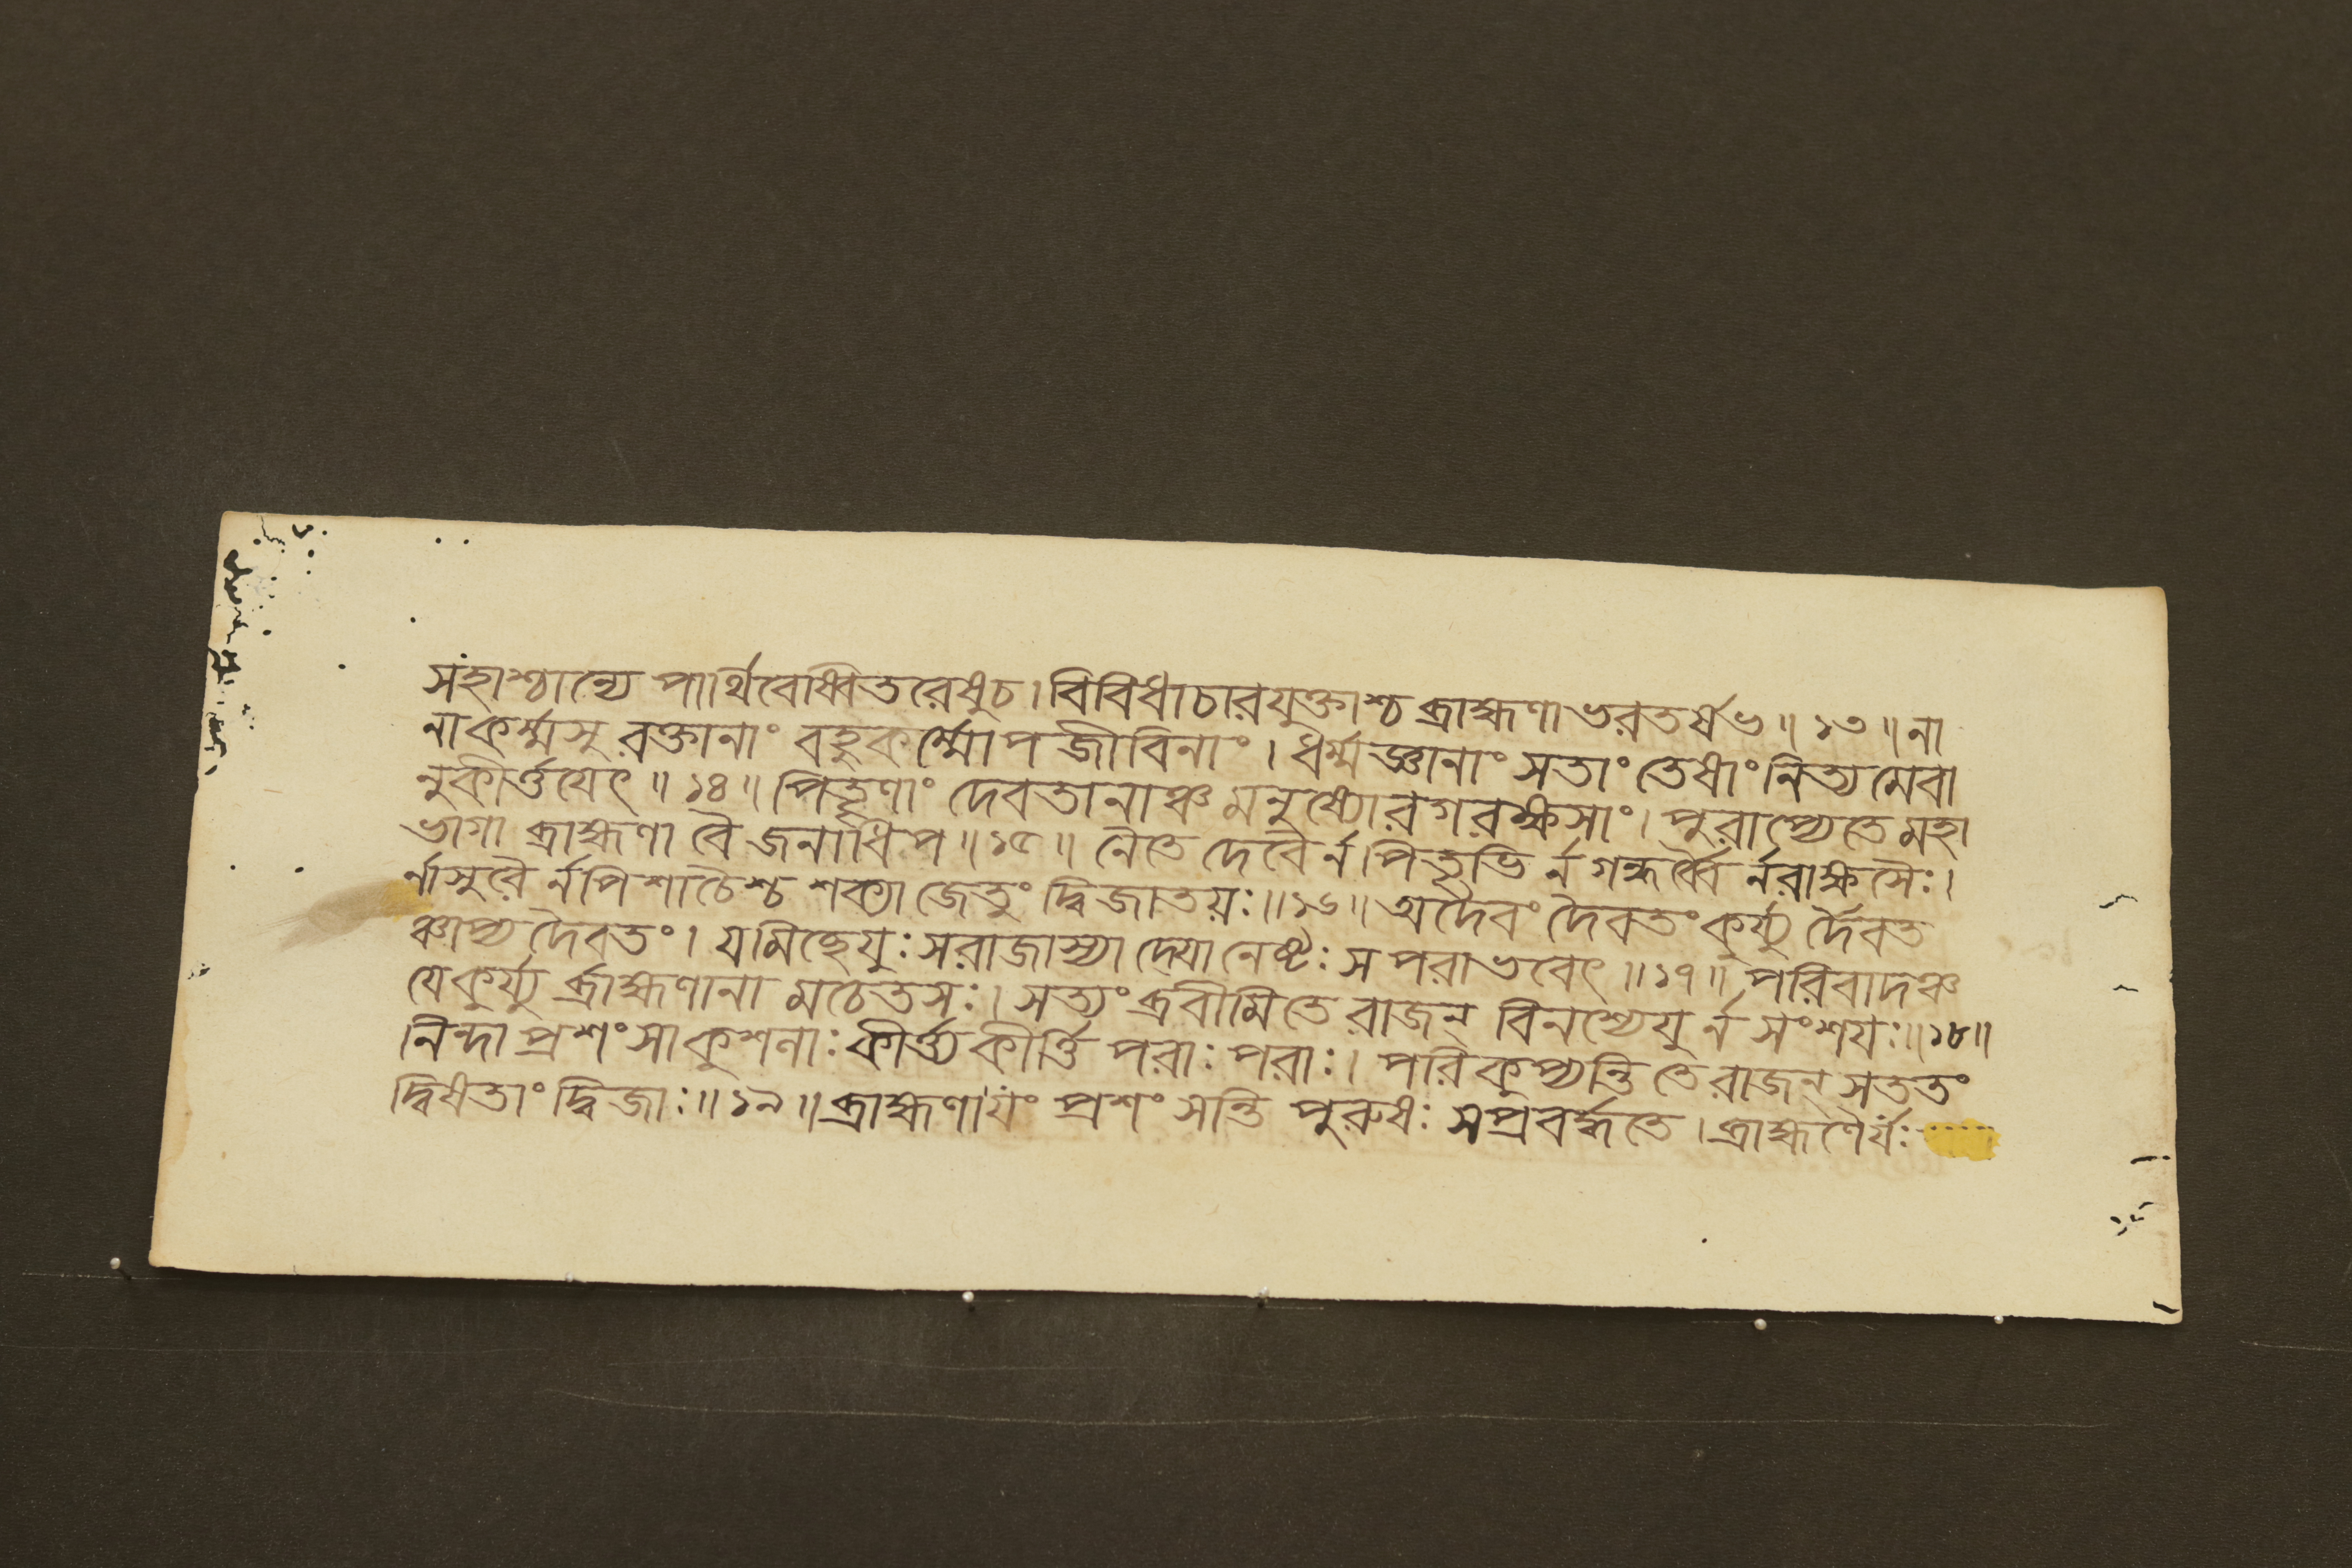 সংহাশ্চান্যে পার্থিবেষ্বিতরেষুচ। বিবিধাচারযুক্তাশ্চ ব্রাহ্মণা ভরতর্ষভ॥ ১৩॥ না
নাকর্ম্মসু রক্তানাং বহুকর্ম্মোপজীবিনাং। ধর্ম্মজ্ঞানাং সতাং তেষাং নিত্যমেবা
নুকীর্ত্তযেৎ॥ ১৪॥ পিতৄণাং দেবতানাঞ্চ মনুষ্যোরগরক্ষসাং। পুরাপ্যেতে মহা
ভাগা ব্রাহ্মণা বৈ জনাধিপ॥ ১৫॥ নৈতে দেবৈর্ন পিতৃভি র্ন গন্ধর্ব্বৈ র্নরাক্ষসৈঃ।
র্নাসুরৈ র্নপিশাচৈশ্চ শক্যা জেতুং দ্বিজাতয়ঃ॥ ১৬॥ অদৈবং দৈবতং কুর্য্যু র্দৈবত
ঞ্চাপ্য দৈবতং। যমিচ্ছেযুঃ সরাজাস্যা দ্যোনেষ্টঃ স পরাভবেৎ॥ ১৭॥ পরিবাদঞ্চ
যেকুর্য্যু র্ব্রাহ্মণানা মচেতসঃ। সত্যং ব্রবীমিতে রাজন্ বিনশ্যেযু র্ন সংশযঃ॥ ১৮॥
নিন্দা প্রশংসাকুশনাঃ কীর্ত্ত্যকীর্ত্তি পরাঃ পরাঃ। পরিকুপ্যন্তি তে রাজন্ সততং
দ্বিষতাং দ্বিজাঃ॥ ১৯॥ ব্রাহ্মণাযং প্রশংসন্তি পুরুষঃ সপ্রবর্দ্ধতে। ব্রাহ্মণৈর্যঃ